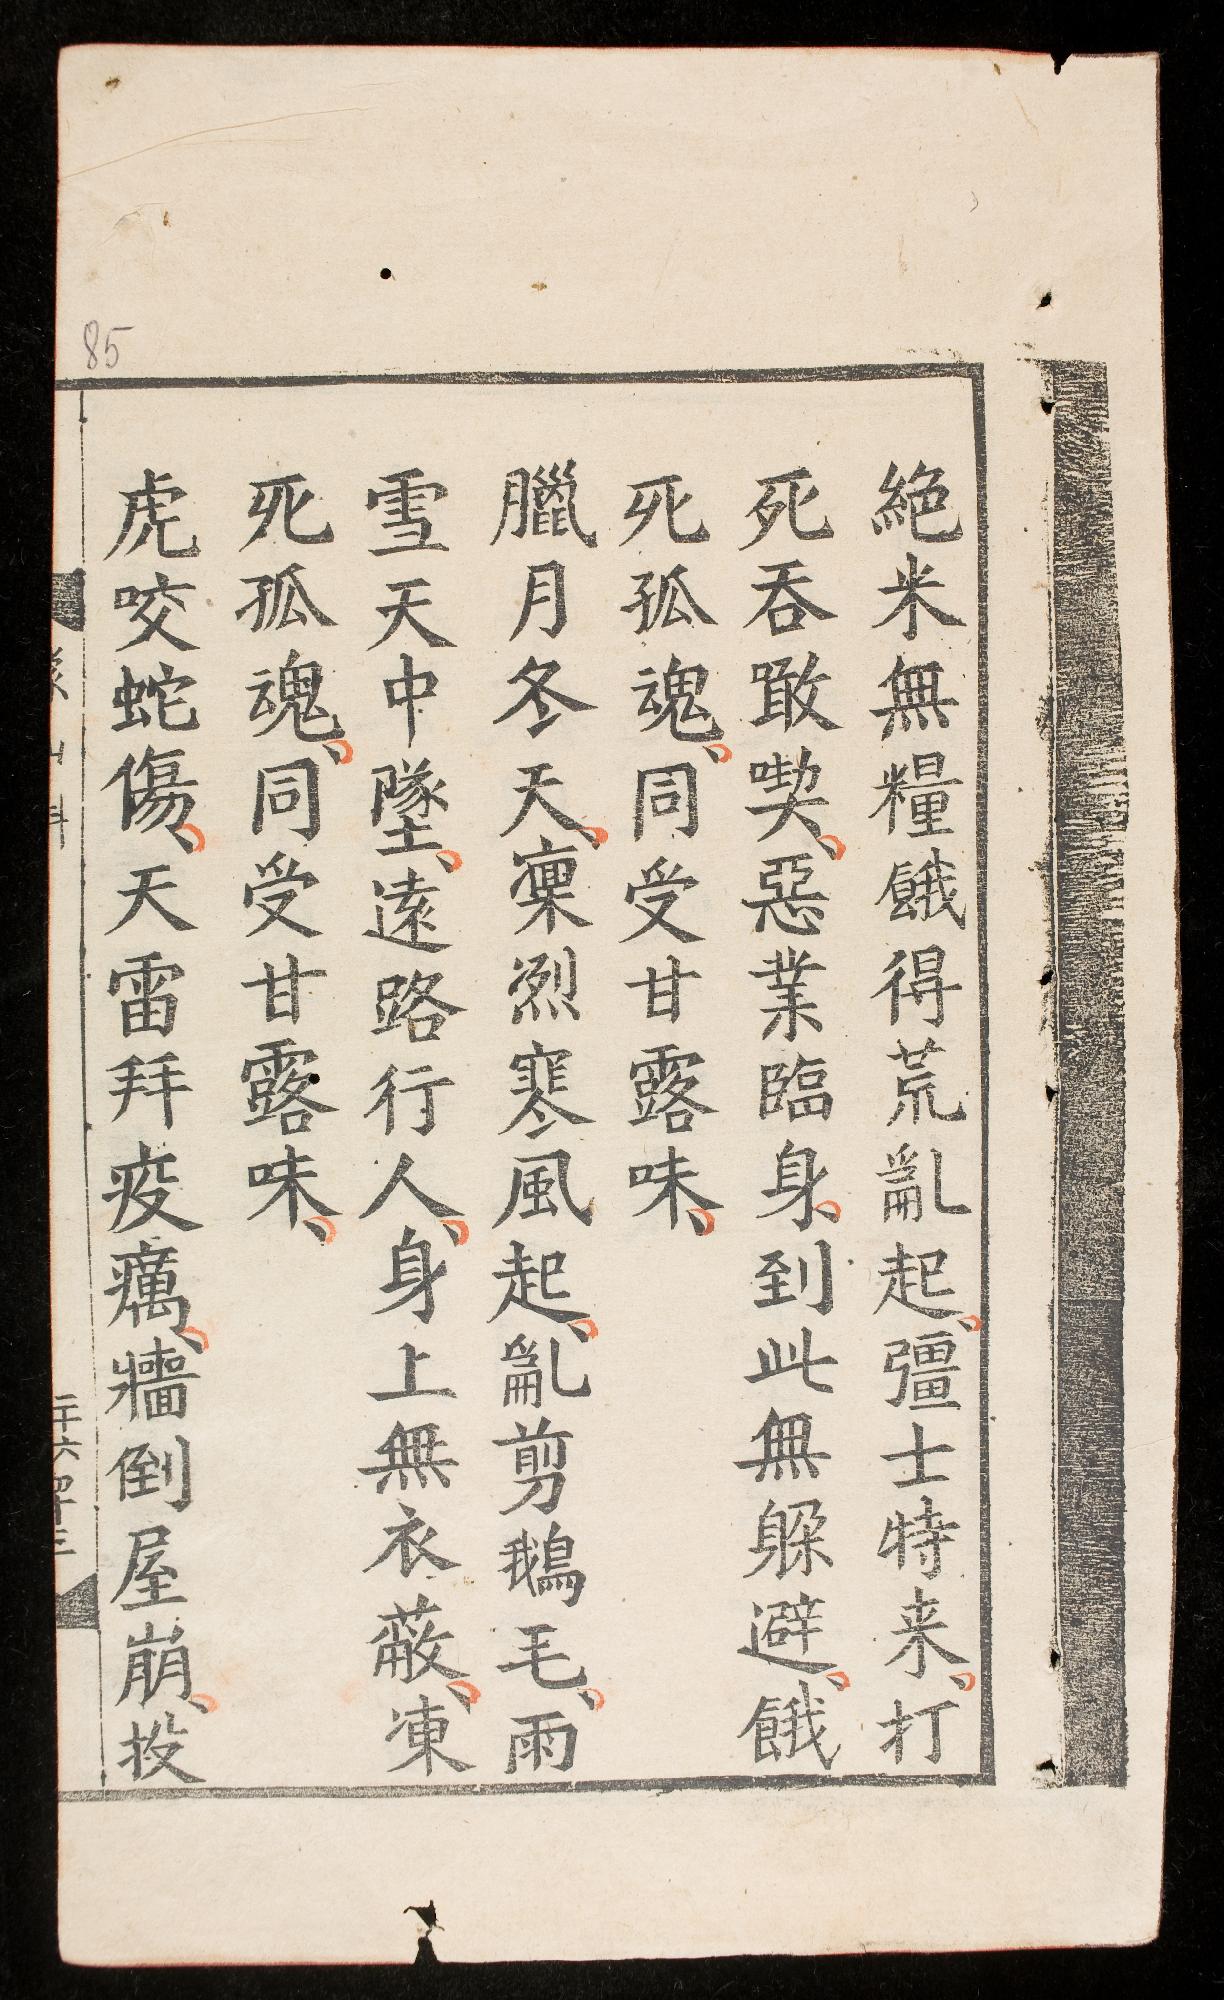 85
絶米無糧餓得荒亂起、彊士特来、打
死吞噉喫、惡業臨身、到此無躱避、餓
死孤魂、同受甘露味、
臘月冬天、凜烈寒風起、亂剪鵝毛、雨
雪天中墜、遠路行人、身上無衣蔽、凍
死孤魂、同受甘露味、
虎咬蛇傷、天雷拜疫癘、牆倒屋崩、投